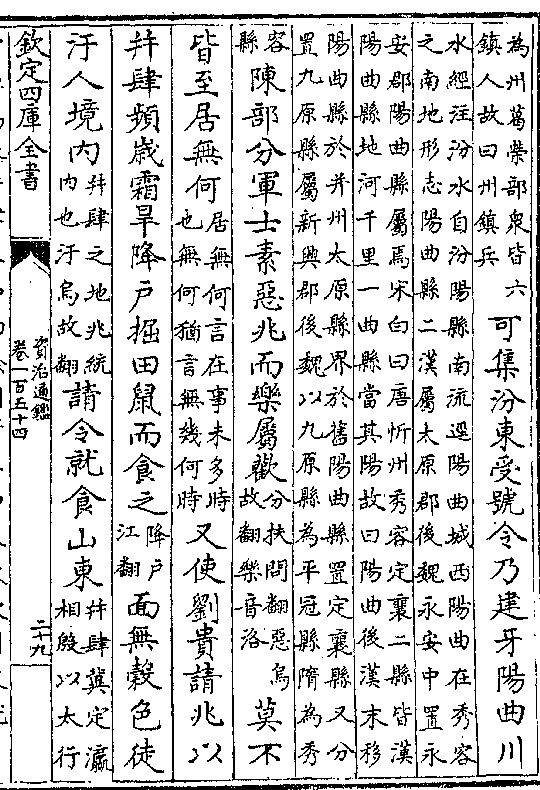 為州葛榮部衆皆六
鎮人故曰州鎮兵
可集汾東受號令乃建牙陽曲川
水經注汾水自汾陽縣南流逕陽曲城西陽曲在秀容
之南地形志陽曲縣二漢屬太原郡後魏永安中置永
安郡陽曲縣屬焉宋白曰唐忻州秀容定襄二縣皆漢
陽曲縣地河千里一曲縣當其陽故曰陽曲後漢末移
陽曲縣於并州太原縣界於舊陽曲縣置定襄縣又分
置九原縣屬新興郡後魏以九原縣為平冦縣隋為秀
容
縣
陳部分軍士素惡兆而樂屬歡
分扶問翻惡烏
故翻樂音洛
莫不
皆至居無何
居無何言在事未多時
也無何猶言無幾何時
又使劉貴請兆以
并肆頻歳霜旱降戶掘田鼠而食之
降戶
江翻
面無穀色徒
汙人境内
并肆之地兆統
内也汙烏故翻
請令就食山東
并肆冀定瀛
相殷以太行
欽定四庫全書
資治通鑑
卷一百五十四
二十九